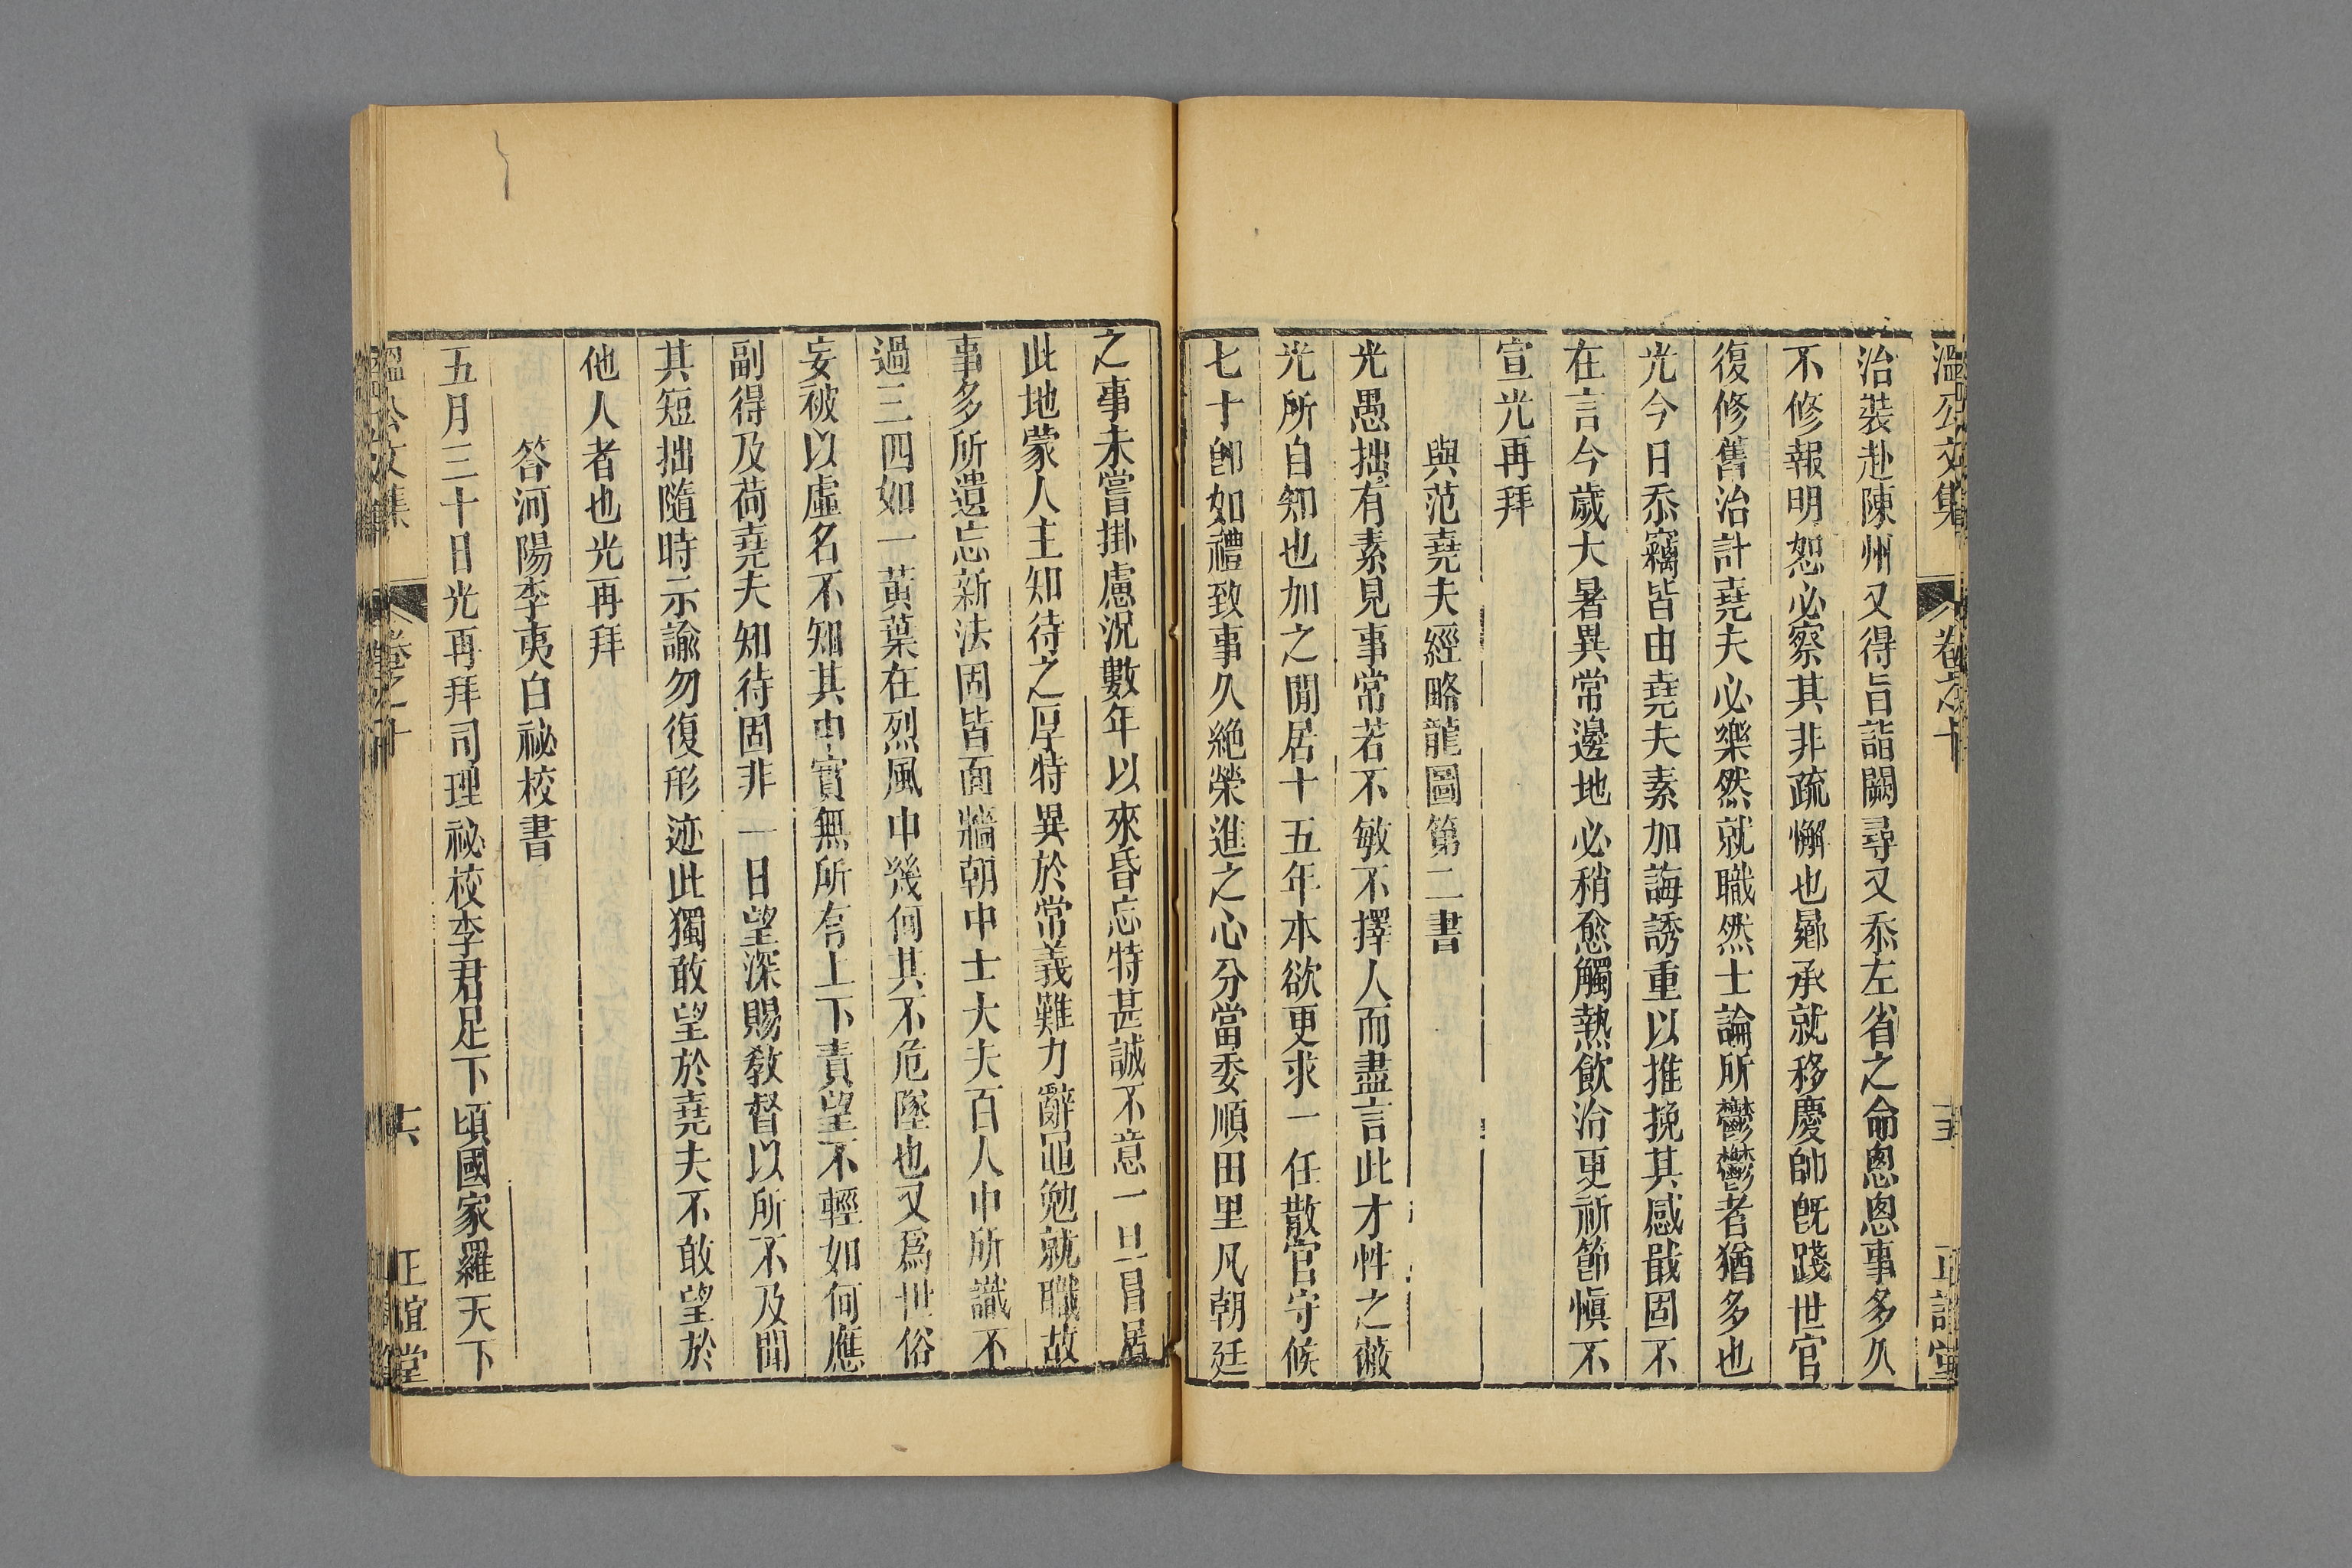 溫公文集 卷之十 十五 正誼堂
治裝赴陳州又得旨詣闕尋又忝左省之命怱怱事多久
不修報明恕必察其非疏懈也曏承就移慶帥旣踐世官
復修舊治計堯夫必樂然就職然士論所鬱鬱者猶多也
光今日忝竊皆由堯夫素加誨誘重以推挽其感戢固不
在言今歲大暑異常邊地必稍愈觸熱飲冶更祈節愼不
宣光再拜
與范堯夫經略龍圖第二書
光愚拙有素見事常若不敏不擇人而盡言此才性之蔽
光所自知也加之閒居十五年本欲更求一任散官守候
七十卽如禮致事久絶榮進之心分當委順田里凡朝廷
之事未嘗掛慮況數年以來昏忘特甚誠不意一旦冒居
此地蒙人主知待之厚特異於常義難力辭黽勉就職故
事多所遺忘新法固皆面牆朝中士大夫百人中所識不
過三四如一黃葉在烈風中幾何其不危墜也又爲世俗
妄被以虛名不知其中實無所有上下責望不輕如何應
副得及荷堯夫知待固非一日望深賜敎督以所不及聞
其短拙隨時示諭勿復形迹此獨敢望於堯夫不敢望於
他人者也光再拜
答河陽李夷白祕校書
五月三十日光再拜司理祕校李君足下頃國家羅天下
溫公文集 卷之十 十六 正誼堂